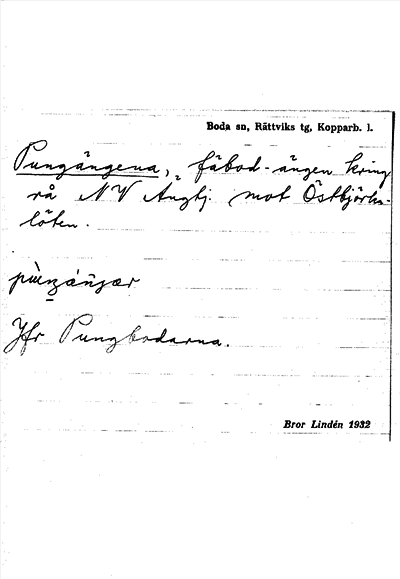 Boda sn, Rättviks tg, Kopparb. l.
Pungängena, fäbod-ängen kring
rå NV Angtj. mot Östbjörks-
löten.
Jfr Pungbodarna.
Bror Lindén 1932